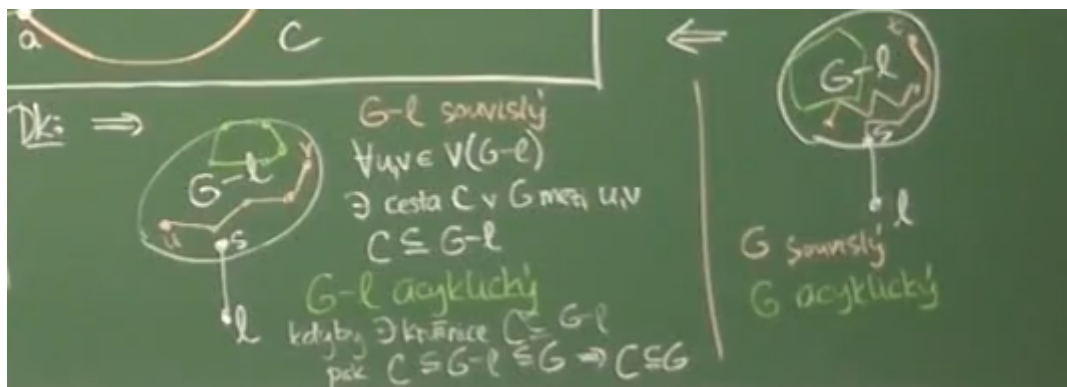 a
C
Dk: ⇒
G-l souvislý
∀u,v ∈ V(G-l)
∃ cesta C v G mezi u,v
C ⊆ G-l
G-l acyklický
kdyby ∃ kružnice C ⊆ G-l
pak C ⊆ G-l ⊆ G ⇒ C ⊆ G
G-l
u
v
s
l
⇐
G-l
s
l
G souvislý
G acyklický